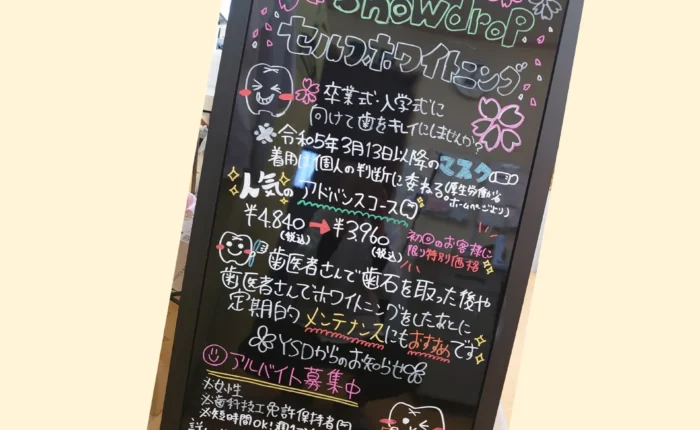 Snowdrop
セルフホワイトニング
卒業式・入学式に
向けて歯をキレイにしませんか?
令和5年3月13日以降のマスク
着用は個人の判断に委ねる(厚生労働省
ホームページより)
人気のアドバンスコース
¥4.840→¥3.960
(税込)
(税込)
初回のお客様に
限り特別価格
歯医者さんで歯石を取った後や
歯医者さんでホワイトニングをしたあとに
定期的メンテナンスにもおすすめです
YSDからのお知らせ
アルバイト募集中
※女性
※歯科技工免許保持者
※短時間OK!週1